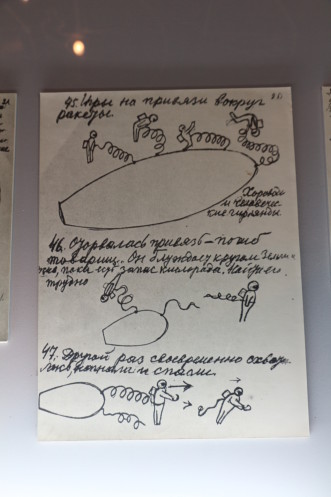 45. Игры на привязи вокруг
ракеты.
Хоровода
и человечес-
кие гирлянды
46. Оторвалась привязь – погиб
товарищ. Он блуждал кругом Земли
пока был запас кислорода. Найти его
трудно
47. Другой раз своевременно схвати-
лись, догнали и спасли.